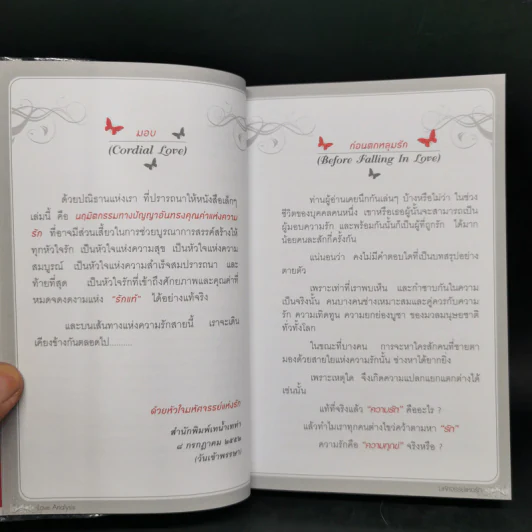 มอบ
(Cordial Love)
ด้วยปณิธานแห่งเรา ที่ปรารถนาให้หนังสือเล็กๆ
เล่มนี้ คือ นฤมิตกรรมทางปัญญาอันทรงคุณค่าแห่งความ
รัก ที่อาจมีส่วนเสี้ยวในการช่วยบูรณาการสรรค์สร้างให้
ทุกหัวใจรัก เป็นหัวใจแห่งความสุข เป็นหัวใจแห่งความ
สมบูรณ์ เป็นหัวใจแห่งความสำเร็จสมปรารถนา และ
ท้ายที่สุด เป็นหัวใจรักที่เข้าถึงศักยภาพและคุณค่าที่
หมดจดงดงามแห่ง "รักแท้" ได้อย่างแท้จริง
และบนเส้นทางแห่งความรักสายนี้ เราจะเดิน
เคียงข้างกันตลอดไป.........
ด้วยหัวใจมหัศจรรย์แห่งรัก
สำนักพิมพ์
๘ กรกฎาคม ๒๕๕๒
(วันเข้าพรรษา)
Love Analysis
ก่อนตกหลุมรัก
(Before Falling In Love)
ท่านผู้อ่านเคยนึกกันเล่นๆ บ้างหรือไม่ว่า ในช่วง
ชีวิตของบุคคลคนหนึ่ง เขาหรือเธอผู้นั้นจะสามารถเป็น
ผู้มอบความรัก และพร้อมกันนั้นก็เป็นผู้ที่ถูกรัก ได้มาก
น้อยคนละสักกี่ครั้งกัน
แน่นอนว่า คงไม่มีคำตอบใดที่เป็นบทสรุปอย่าง
ตายตัว
เพราะเท่าที่เราพบเห็น และกำซาบกันในความ
เป็นจริงนั้น คนบางคนช่างเหมาะสมและคู่ควรกับความ
รัก ความเทิดทูน ความยกย่องบูชา ของมวลมนุษยชาติ
ทั่วทั้งโลก
ในขณะที่บางคน การจะหาใครสักคนที่ชายตา
มองด้วยสายใยแห่งความรักนั้น ช่างหาได้ยากยิ่ง
เพราะเหตุใด จึงเกิดความแปลกแยกแตกต่างได้
เช่นนั้น
แท้ที่จริงแล้ว "ความรัก" คืออะไร ?
แล้วทำไมเราทุกคนต่างไขว่คว้าตามหา "รัก"
ความรักคือ "ความทุกข์" จริงหรือ ?